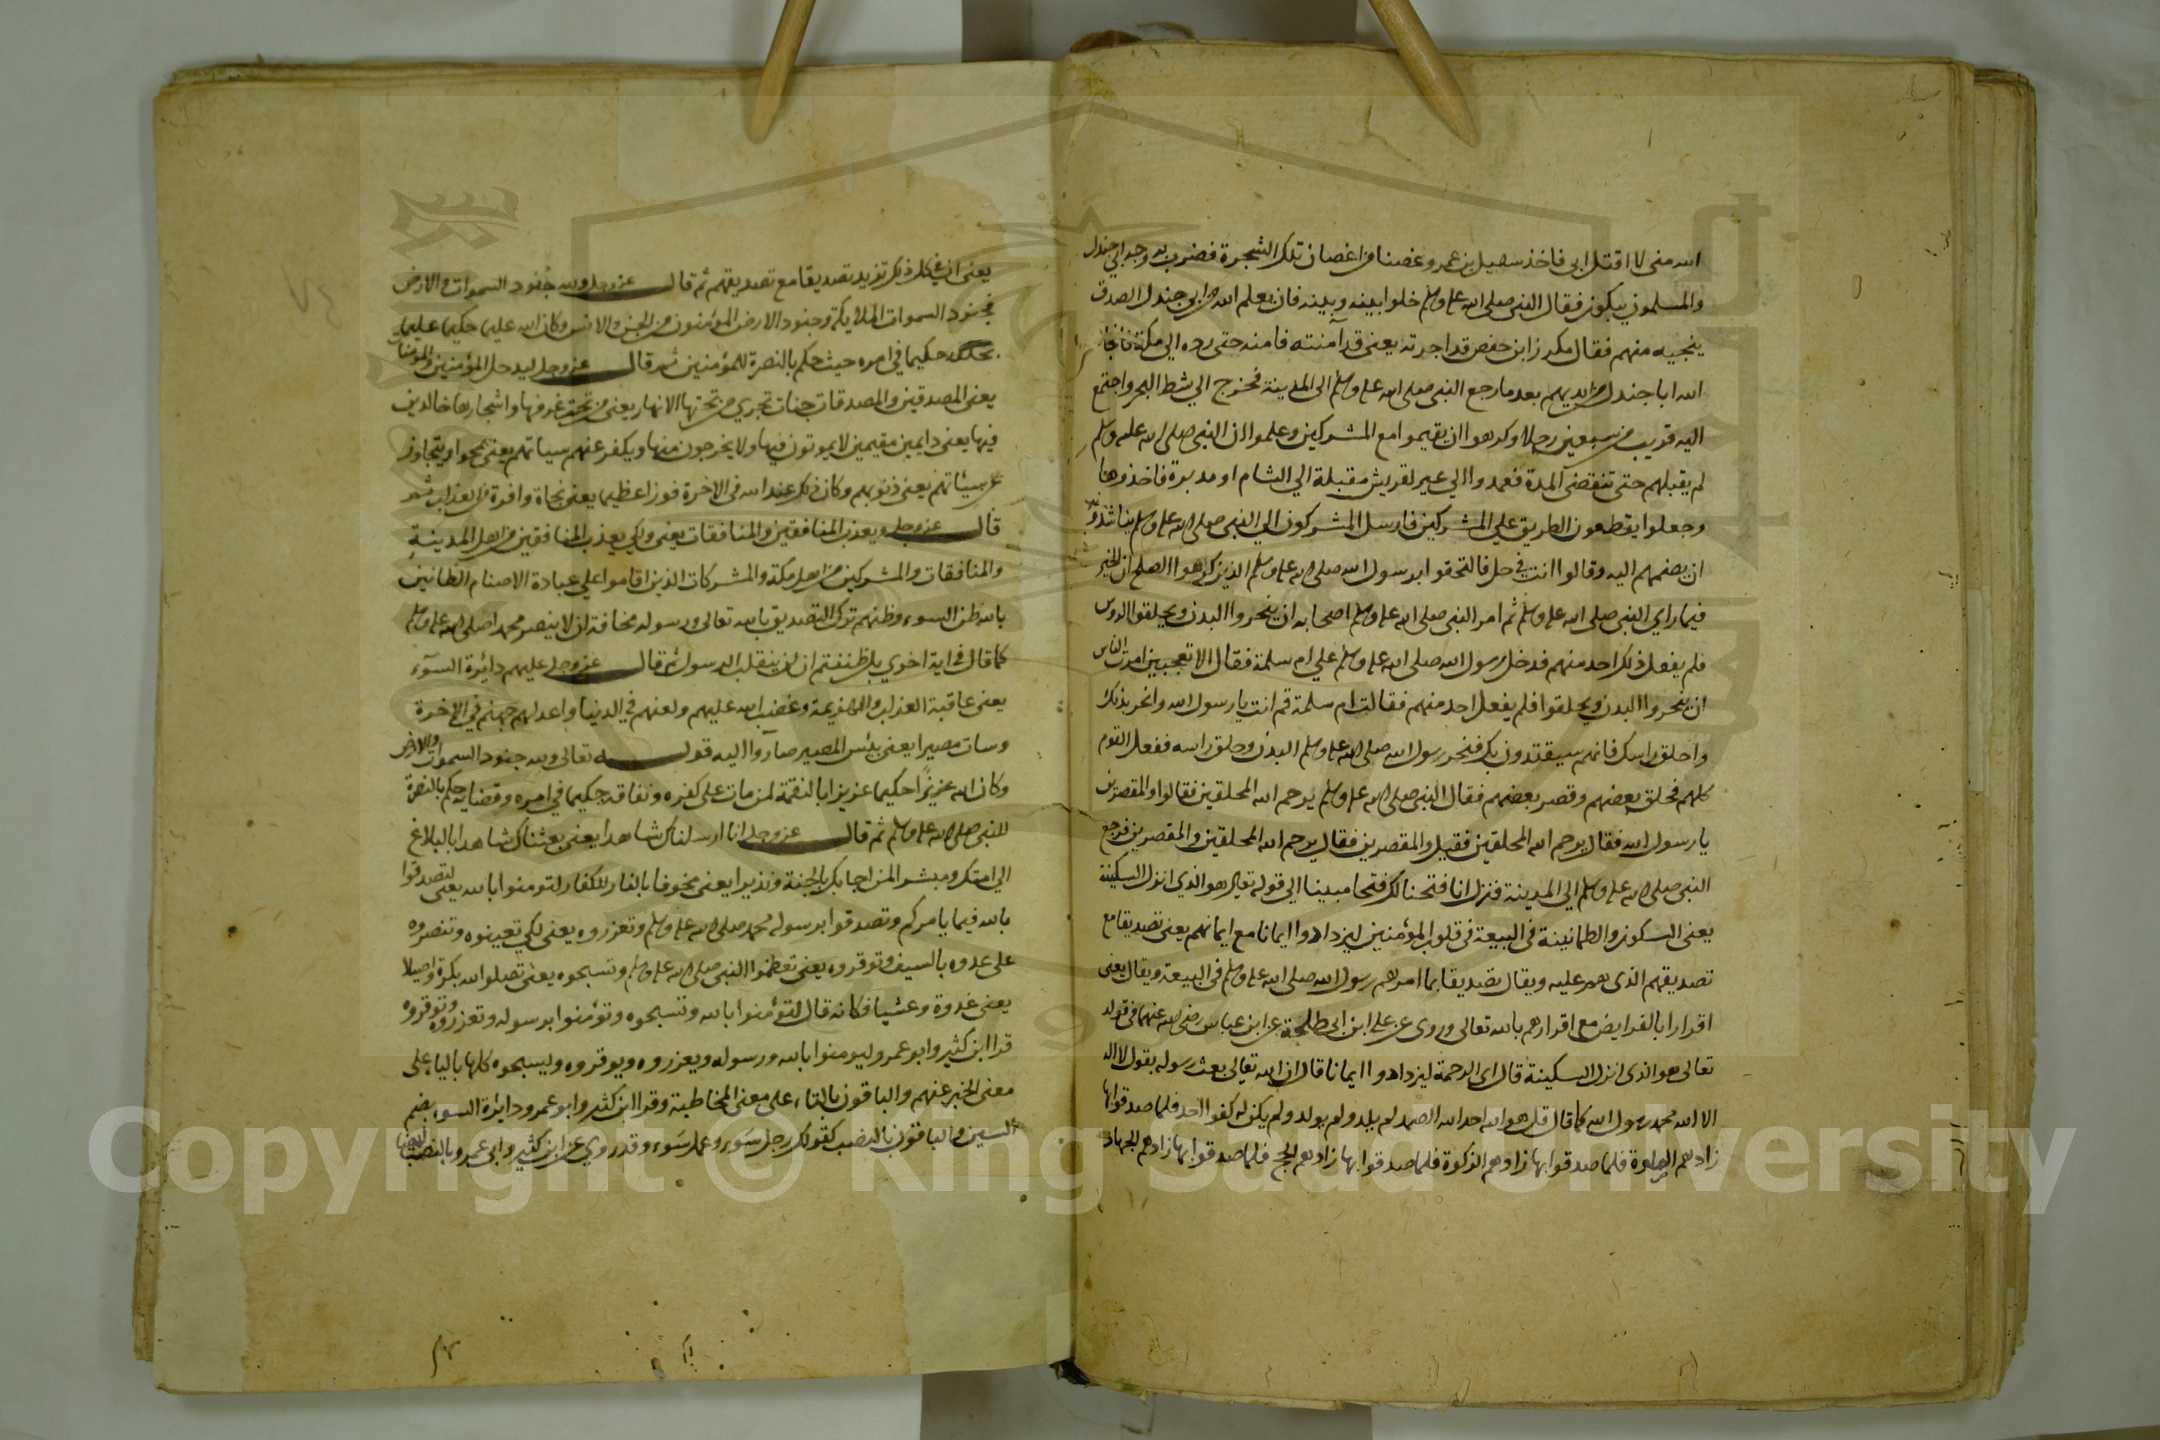 الله مني لا اقتل ابي فاخذ سهيل بن عمرو غصنا من اغصان تلك الشجرة فضرب به وجه ابي جندل
والمسلمون يبكون فقال النبي صلى الله عليه وسلم خلوا بينه وبينه فان يعلم الله من ابي جندل الصدق
ينجيه منهم فقال مكرز ابن حفص قد اجرته يعني قد آمنته فامنه حتى رده الي مكة فانجا
الله ابا جندل من ايديهم بعد ما رجع النبي صلى الله عليه وسلم الى المدينة فخرج الي شط البحر واجتمع
اليه قريب من سبعين رجلا وكرهوا ان يقيموا مع المشركين وعلموا ان النبي صلى الله عليه وسلم
لم يقبلهم حتى تنقضي المدة فعمدوا الي عير لقريش مقبلة الي الشام او مدبرة فاخذوها
وجعلوا يقطعون الطريق علي المشركين فارسل المشركون الي النبي صلى الله عليه وسلم يناشدونه
ان يضمهم اليه وقالوا انت في حل فالتحقوا برسول الله صلى الله عليه وسلم الذين كرهوا الصلح ان الخير
فيما راي النبي صلى الله عليه وسلم ثم امر النبي صلى الله عليه وسلم اصحابه ان ينحروا البدن ويحلقوا الروس
فلم يفعل ذلك احد منهم فدخل رسول الله صلى الله عليه وسلم علي ام سلمة فقال الا تعجبين امرت الناس
ان ينحروا البدن ويحلقوا فلم يفعل احد منهم فقالت ام سلمة قم انت يا رسول الله وانحر بدنك
واحلق راسك فانهم سيقتدون بك فنحر رسول الله صلى الله عليه وسلم البدن وحلق راسه ففعل القوم
كلهم فحلق بعضهم وقصر بعضهم فقال النبي صلى الله عليه وسلم يرحم الله المحلقين فقالوا والمقصرين
يا رسول الله فقال يرحم الله المحلقين فقيل والمقصرين فقال يرحم الله المحلقين والمقصرين فرجع
النبي صلى الله عليه وسلم الي المدينة فنزل انا فتحنا لك فتحا مبينا الي قوله تعالى هو الذي انزل السكينة
يعني السكون والطمانينة في البيعة في قلوب المؤمنين ليزدادوا ايمانا مع ايمانهم يعني تصديقا مع
تصديقهم الذي هم عليه ويقال تصديقا بما امرهم رسول الله صلى الله عليه وسلم في البيعة ويقال يعني
اقرارا بالفرايض مع اقرارهم بالله تعالى وروى عن علي ابن ابي طلحة عن ابن عباس رضي الله عنهما في قوله
تعالى هو الذي انزل السكينة قال اي الرحمة ليزدادوا ايمانا قال ان الله تعالى بعث رسوله بقول لا اله
الا الله محمد رسول الله كما قال قل هو الله احد الله الصمد لم يلد ولم يولد ولم يكن له كفوا احد فلما صدقوا بها
زادهم الصلوة فلما صدقوا بها زادهم الزكوة فلما صدقوا بها زادهم الحج فلما صدقوا بها زادهم الجهاد
يعني ان في كل ذلك تزيد تصديقا مع تصديقهم ثم قال عز وجل ولله جنود السموات والارض
فجنود السموات الملايكة وجنود الارض المؤمنون من الجن والانس وكان الله عليما حكيما عليما
بخلقه حكيما في امره حيث حكم بالنصرة للمؤمنين ثم قال عز وجل ليدخل المؤمنين والمؤمنات
يعني المصدقين والمصدقات جنات تجري من تحتها الانهار يعني من تحت غرفها واشجارها خالدين
فيها يعني دايمين مقيمين لا يموتون فيها ولا يخرجون منها ويكفر عنهم سياتهم يعني يمحوا ويتجاوز
عن سيئاتهم يعني ذنوبهم وكان ذلك عند الله في الاخرة فوزا عظيما يعني نجاة وافرة من العذاب ثم
قال عز وجل ويعذب المنافقين والمنافقات يعني ولكي يعذب المنافقين من اهل المدينة
والمنافقات والمشركين من اهل مكة والمشركات الذين اقاموا علي عبادة الاصنام الظانين
بالله ظن السوء وظنهم ترك التصديق بالله تعالى ورسوله مخافة ان لا ينصر محمد اصلى الله عليه وسلم
كما قال في اية اخرى بل ظننتم ان لن ينقلب الرسول ثم قال عز وجل عليهم دائرة السوء
يعني عاقبة العذاب والهزيمة وغضب الله عليهم ولعنهم في الدنيا واعد لهم جهنم في الاخرة
وسات مصيرا يعني بئس المصير صاروا اليه قوله تعالى ولله جنود السموات والارض
وكان الله عزيزا حكيما عزيزا بالنقمة لمن مات على كفره ونفاقه حكيما في امره وقضايه حكم بالنصرة
للنبي صلى الله عليه وسلم ثم قال عز وجل انا ارسلناك شاهدا يعني بعثناك شاهدا بالبلاغ
الي امتك ومبشرا لمن اجابك بالجنة ونذيرا يعني مخوفا بالنار للكفار لتومنوا بالله يعني لتصدقوا
بالله فيما يامركم وتصدقوا برسوله محمد صلى الله عليه وسلم وتعزروه يعني لكي تعينوه وتنصروه
على عدوه بالسيف وتوقروه يعني تعظموا النبي صلى الله عليه وسلم وتسبحوه يعني تصلوا لله بكرة واصيلا
يعني غدوة وعشيا فكانه قال لتؤمنوا بالله وتسبحوه وتؤمنوا برسوله وتعزروه وتوقروه
قرا ابن كثير وابو عمرو ليومنوا بالله ورسوله ويعزروه ويوقروه ويسبحوه كلها بالياء على
معنى الخبر عنهم والباقون بالتاء على معنى المخاطبة وقرا ابن كثير وابو عمرو دايرة السوء بضم
السين والباقون بالنصب كقولك رجل سَوء وعمل سَوء وقد روي عن ابن كثير وابي عمرو بالنصب
Copyright © King Saud University